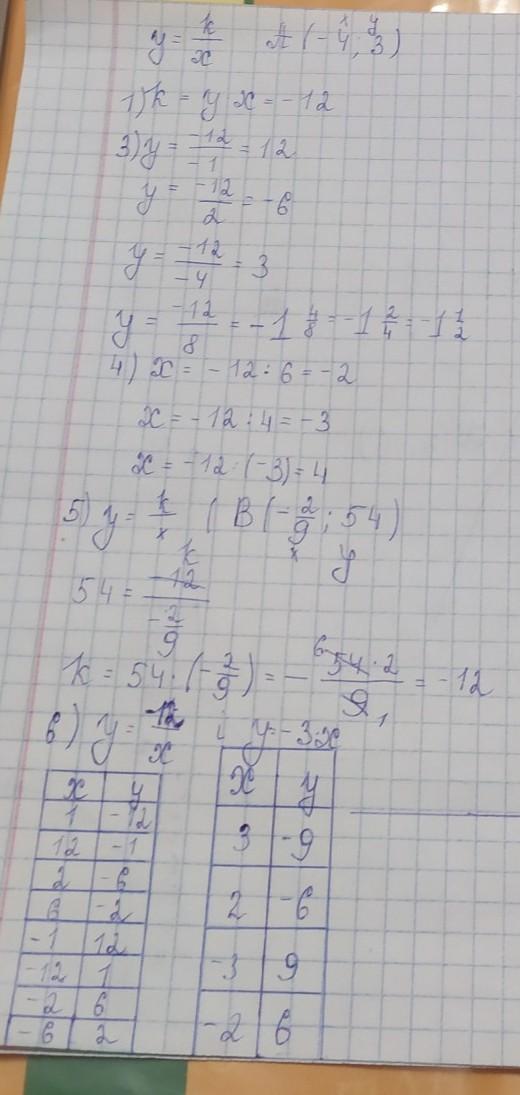 y = k/x   A (-4; 3)
x y
1) k = y · x = -12
3) y = -12/-1 = 12
y = -12/2 = -6
y = -12/-4 = 3
y = -12/8 = -1 4/8 = -1 2/4 = -1 1/2
4) x = -12 : 6 = -2
x = -12 : 4 = -3
x = -12 : (-3) = 4
5) y = k/x   ( B (-2/9; 54)
x y
k
54 = -12/(-2/9)
k = 54 · (-2/9) = - 54 · 2/9 = -12
6 1
6) y = -12/x   i   y = -3·x
x y
1 -12
12 -1
2 -6
6 -2
-1 12
-12 1
-2 6
-6 2
x y
3 -9
2 -6
-3 9
-2 6